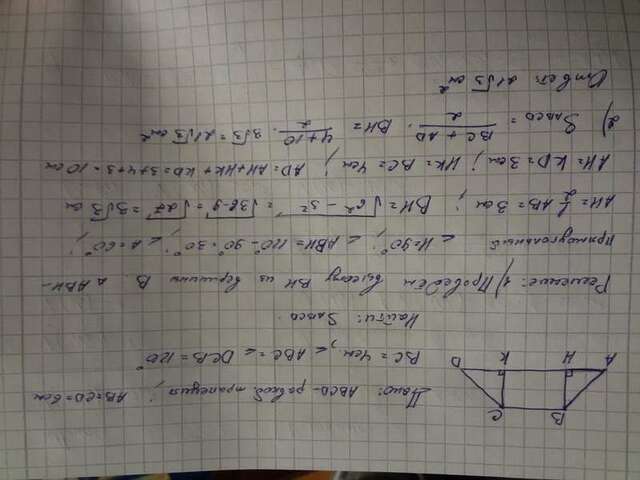 Дано: ABCD - равноб. трапеция; AB=CD=6см
BC=4см, < ABC = < DCB = 120°
Найти: SABCD.
B C
A H K D
Решение: 1) Проведём высоту BH из вершины B. △ ABH -
прямоугольный < H=90°; < ABH = 120°-90°=30°; < A=60°;
AH = 1/2 AB = 3 см; BH = √6²-3² = √36-9 = √27 = 3√3 см
AH = KD = 3см; HK = BC = 4см; AD = AH+HK+KD = 3+4+3 = 10 см
2) SABCD = BC + AD / 2 · BH = 4+10 / 2 · 3√3 = 21√3 см²
Ответ: 21√3 см²